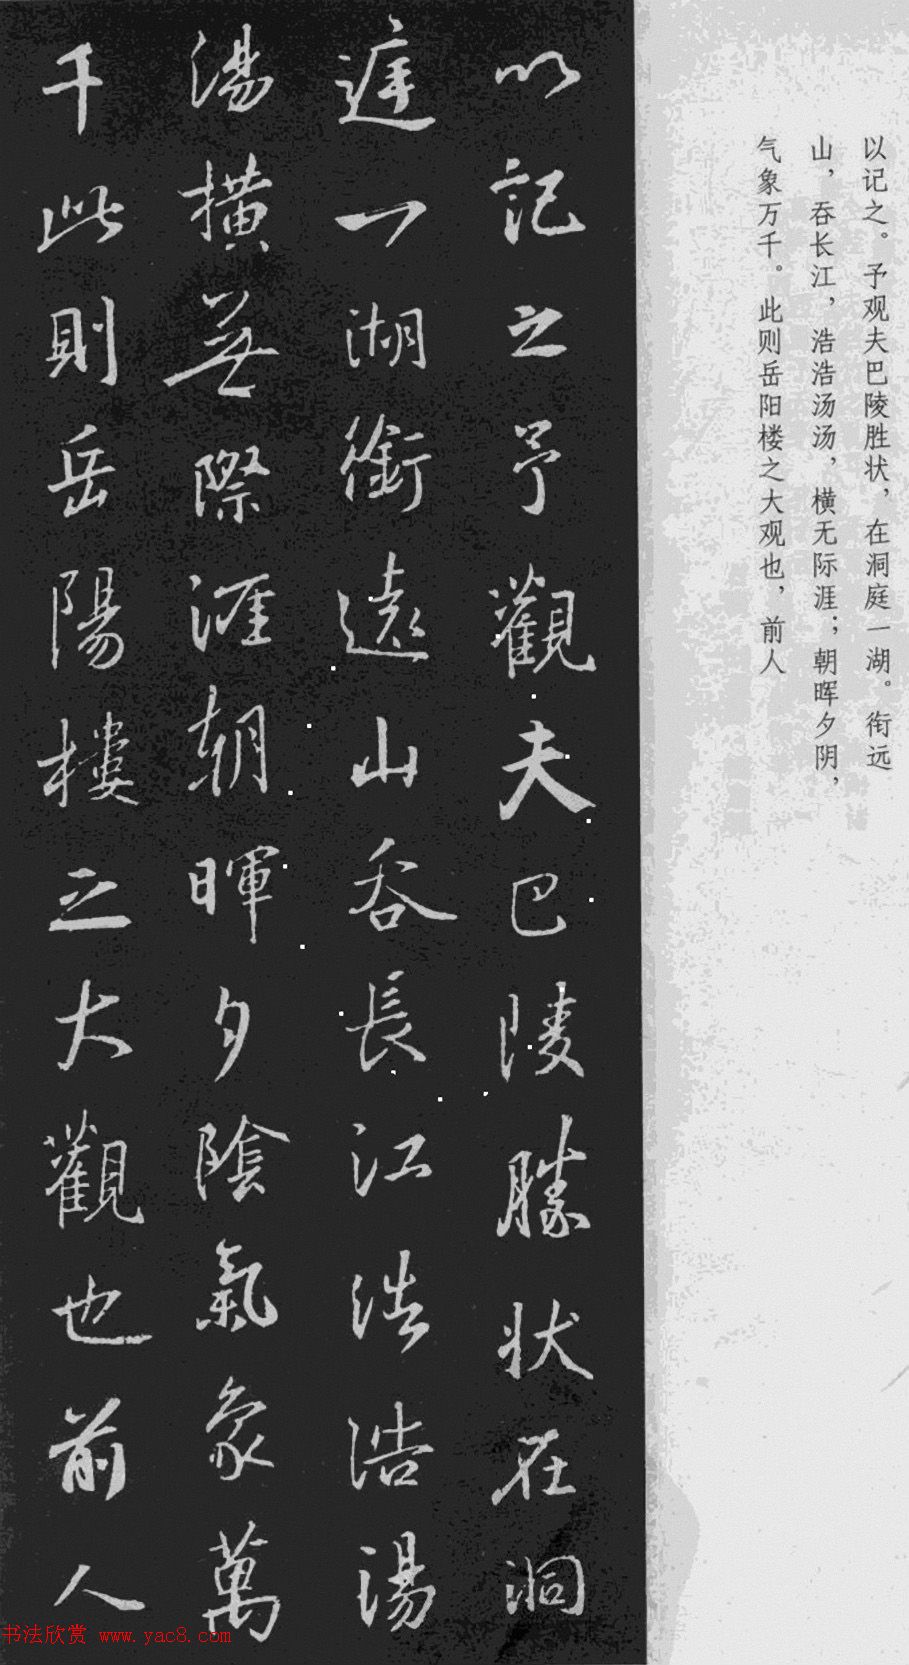 以记之。予观夫巴陵胜状，在洞庭一湖。衔远
山，吞长江，浩浩汤汤，横无际涯；朝晖夕阴，
气象万千。此则岳阳楼之大观也，前人
以記之予觀夫巴陵勝状在洞
庭一湖銜遠山吞長江浩浩湯
湯横無際涯朝暉夕陰氣象萬
千此則岳陽樓之大觀也前人
书法欣赏 www.yac8.com